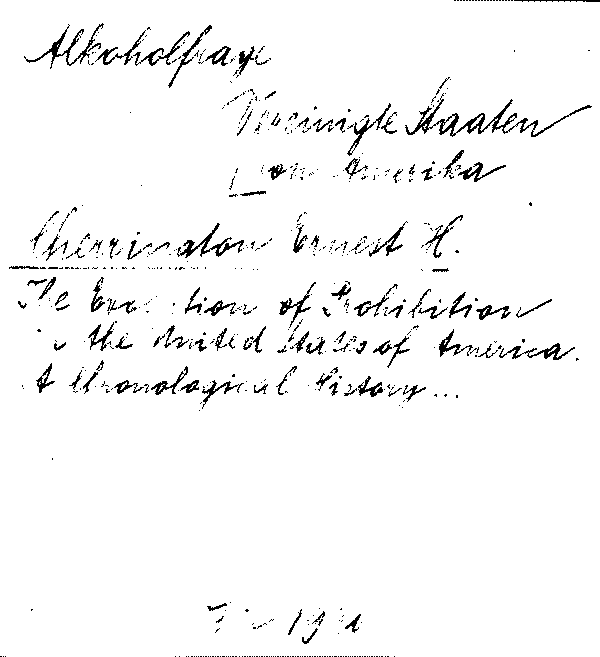 Alkoholfrage
Vereinigte Staaten
von Amerika
Cherrington Ernest H.
The Evolution of Prohibition
in the United States of America.
A Chronological History...